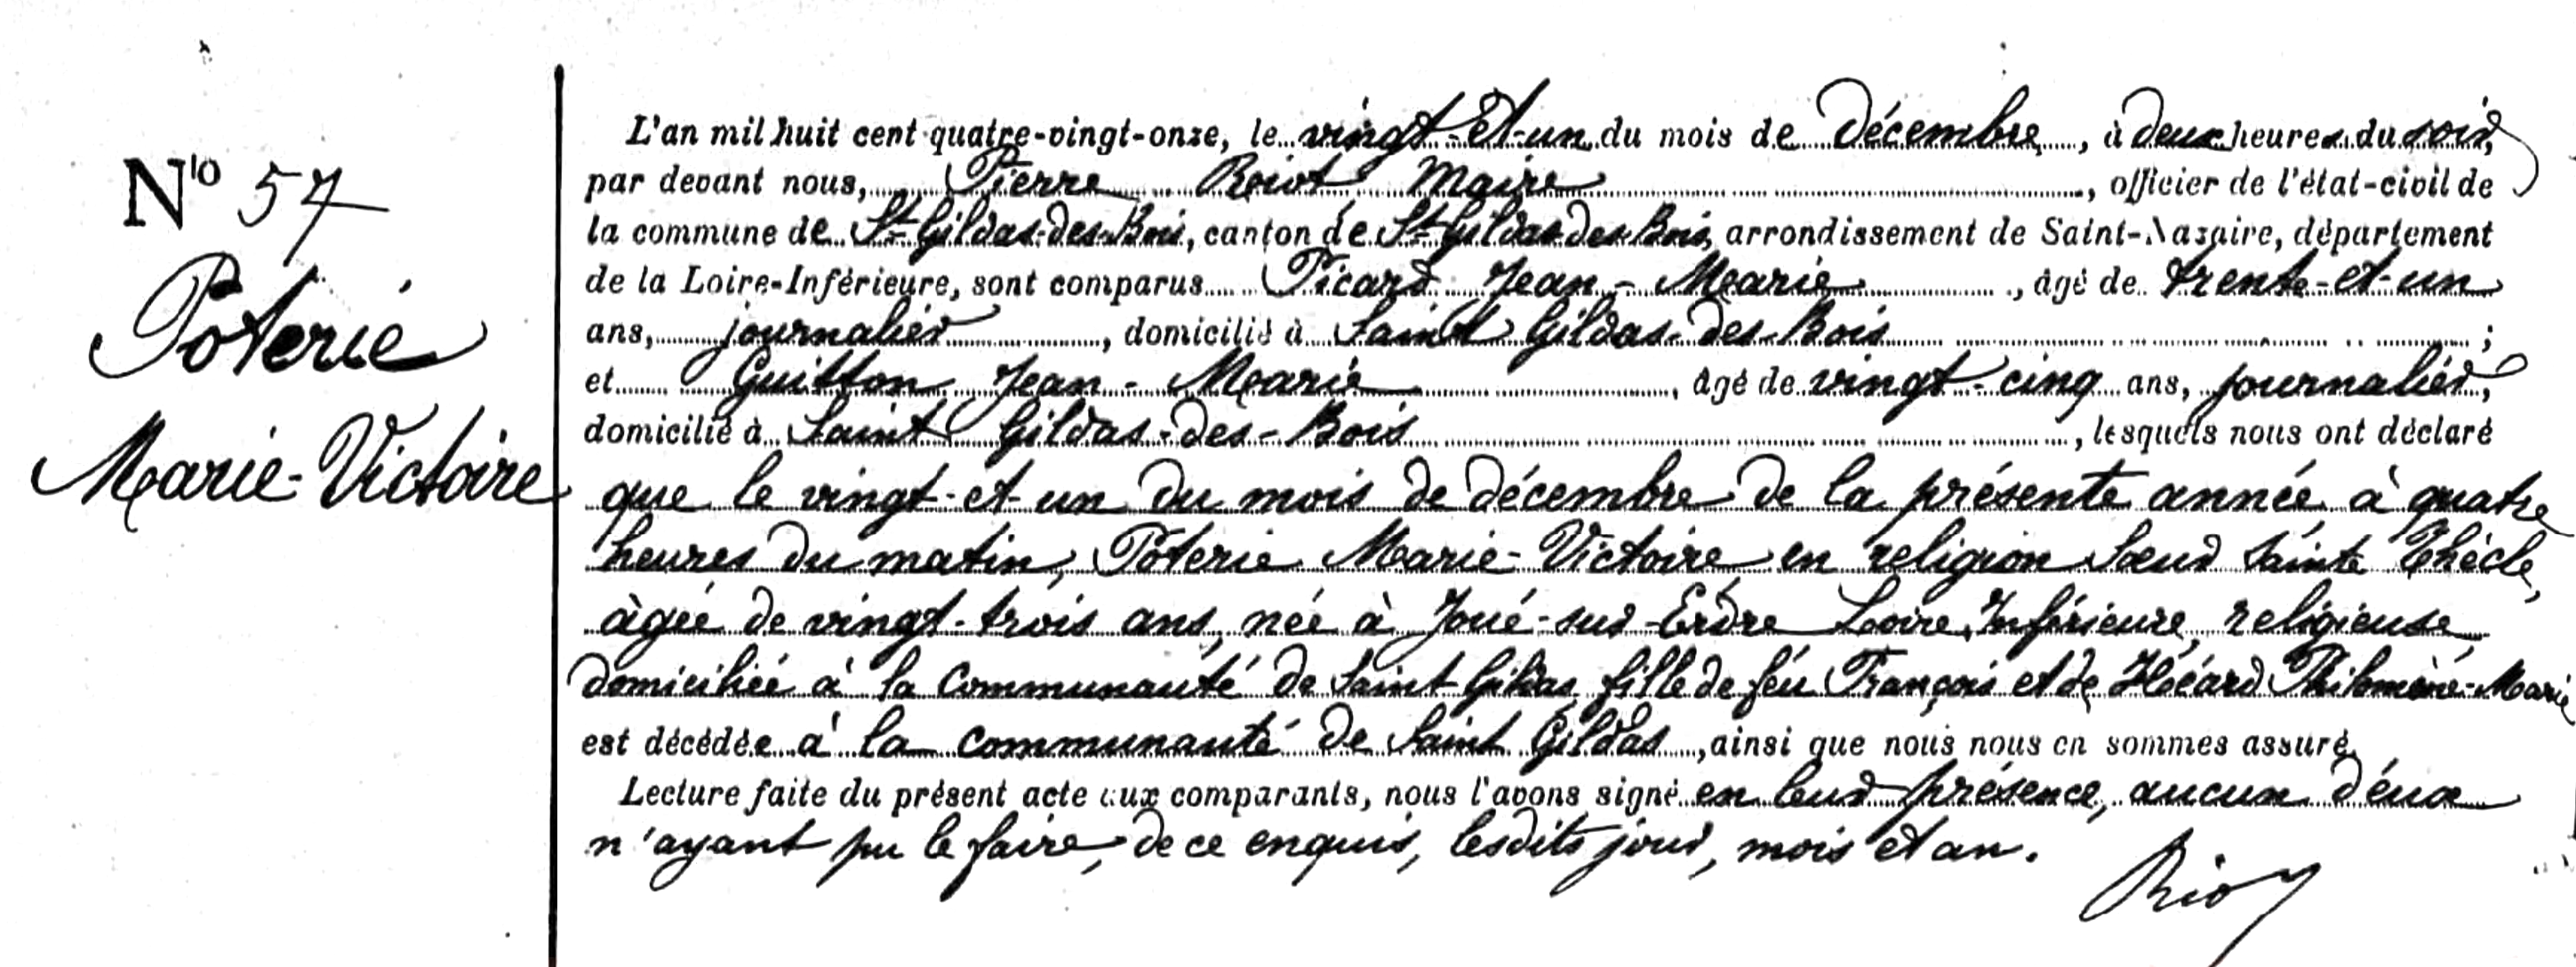 No 57
Poterie
Marie-Victoire
L'an mil huit cent quatre-vingt-onze, le vingt-et-un du mois de décembre, à deux heures du soir,
par devant nous, Pierre Maire, officier de l'état-civil de
la commune de St-Gildas-des-Bois, canton de St-Gildas-des-Bois, arrondissement de Saint-Nazaire, département
de la Loire-Inférieure, sont comparus Picard Jean-Marie, âgé de trente-et-un
ans, journalier, domicilié à Saint Gildas-des-Bois ;
et Guitton Jean-Marie, âgé de vingt-cinq ans, journalier,
domicilié à Saint Gildas-des-Bois, lesquels nous ont déclaré
que le vingt-et-un du mois de décembre de la présente année à quatre
heures du matin, Poterie Marie-Victoire en religion Sœur Sainte Thècle,
âgée de vingt-trois ans, née à Joué-sur-Erdre Loire Inférieure, religieuse,
domiciliée à la Communauté de Saint Gildas, fille de feu François et de Philomène-Marie
est décédée à la communauté de Saint Gildas, ainsi que nous nous en sommes assuré,
Lecture faite du présent acte aux comparants, nous l'avons signé en leur présence, aucun d'eux
n'ayant pu le faire, de ce enquis, lesdits jour, mois et an.